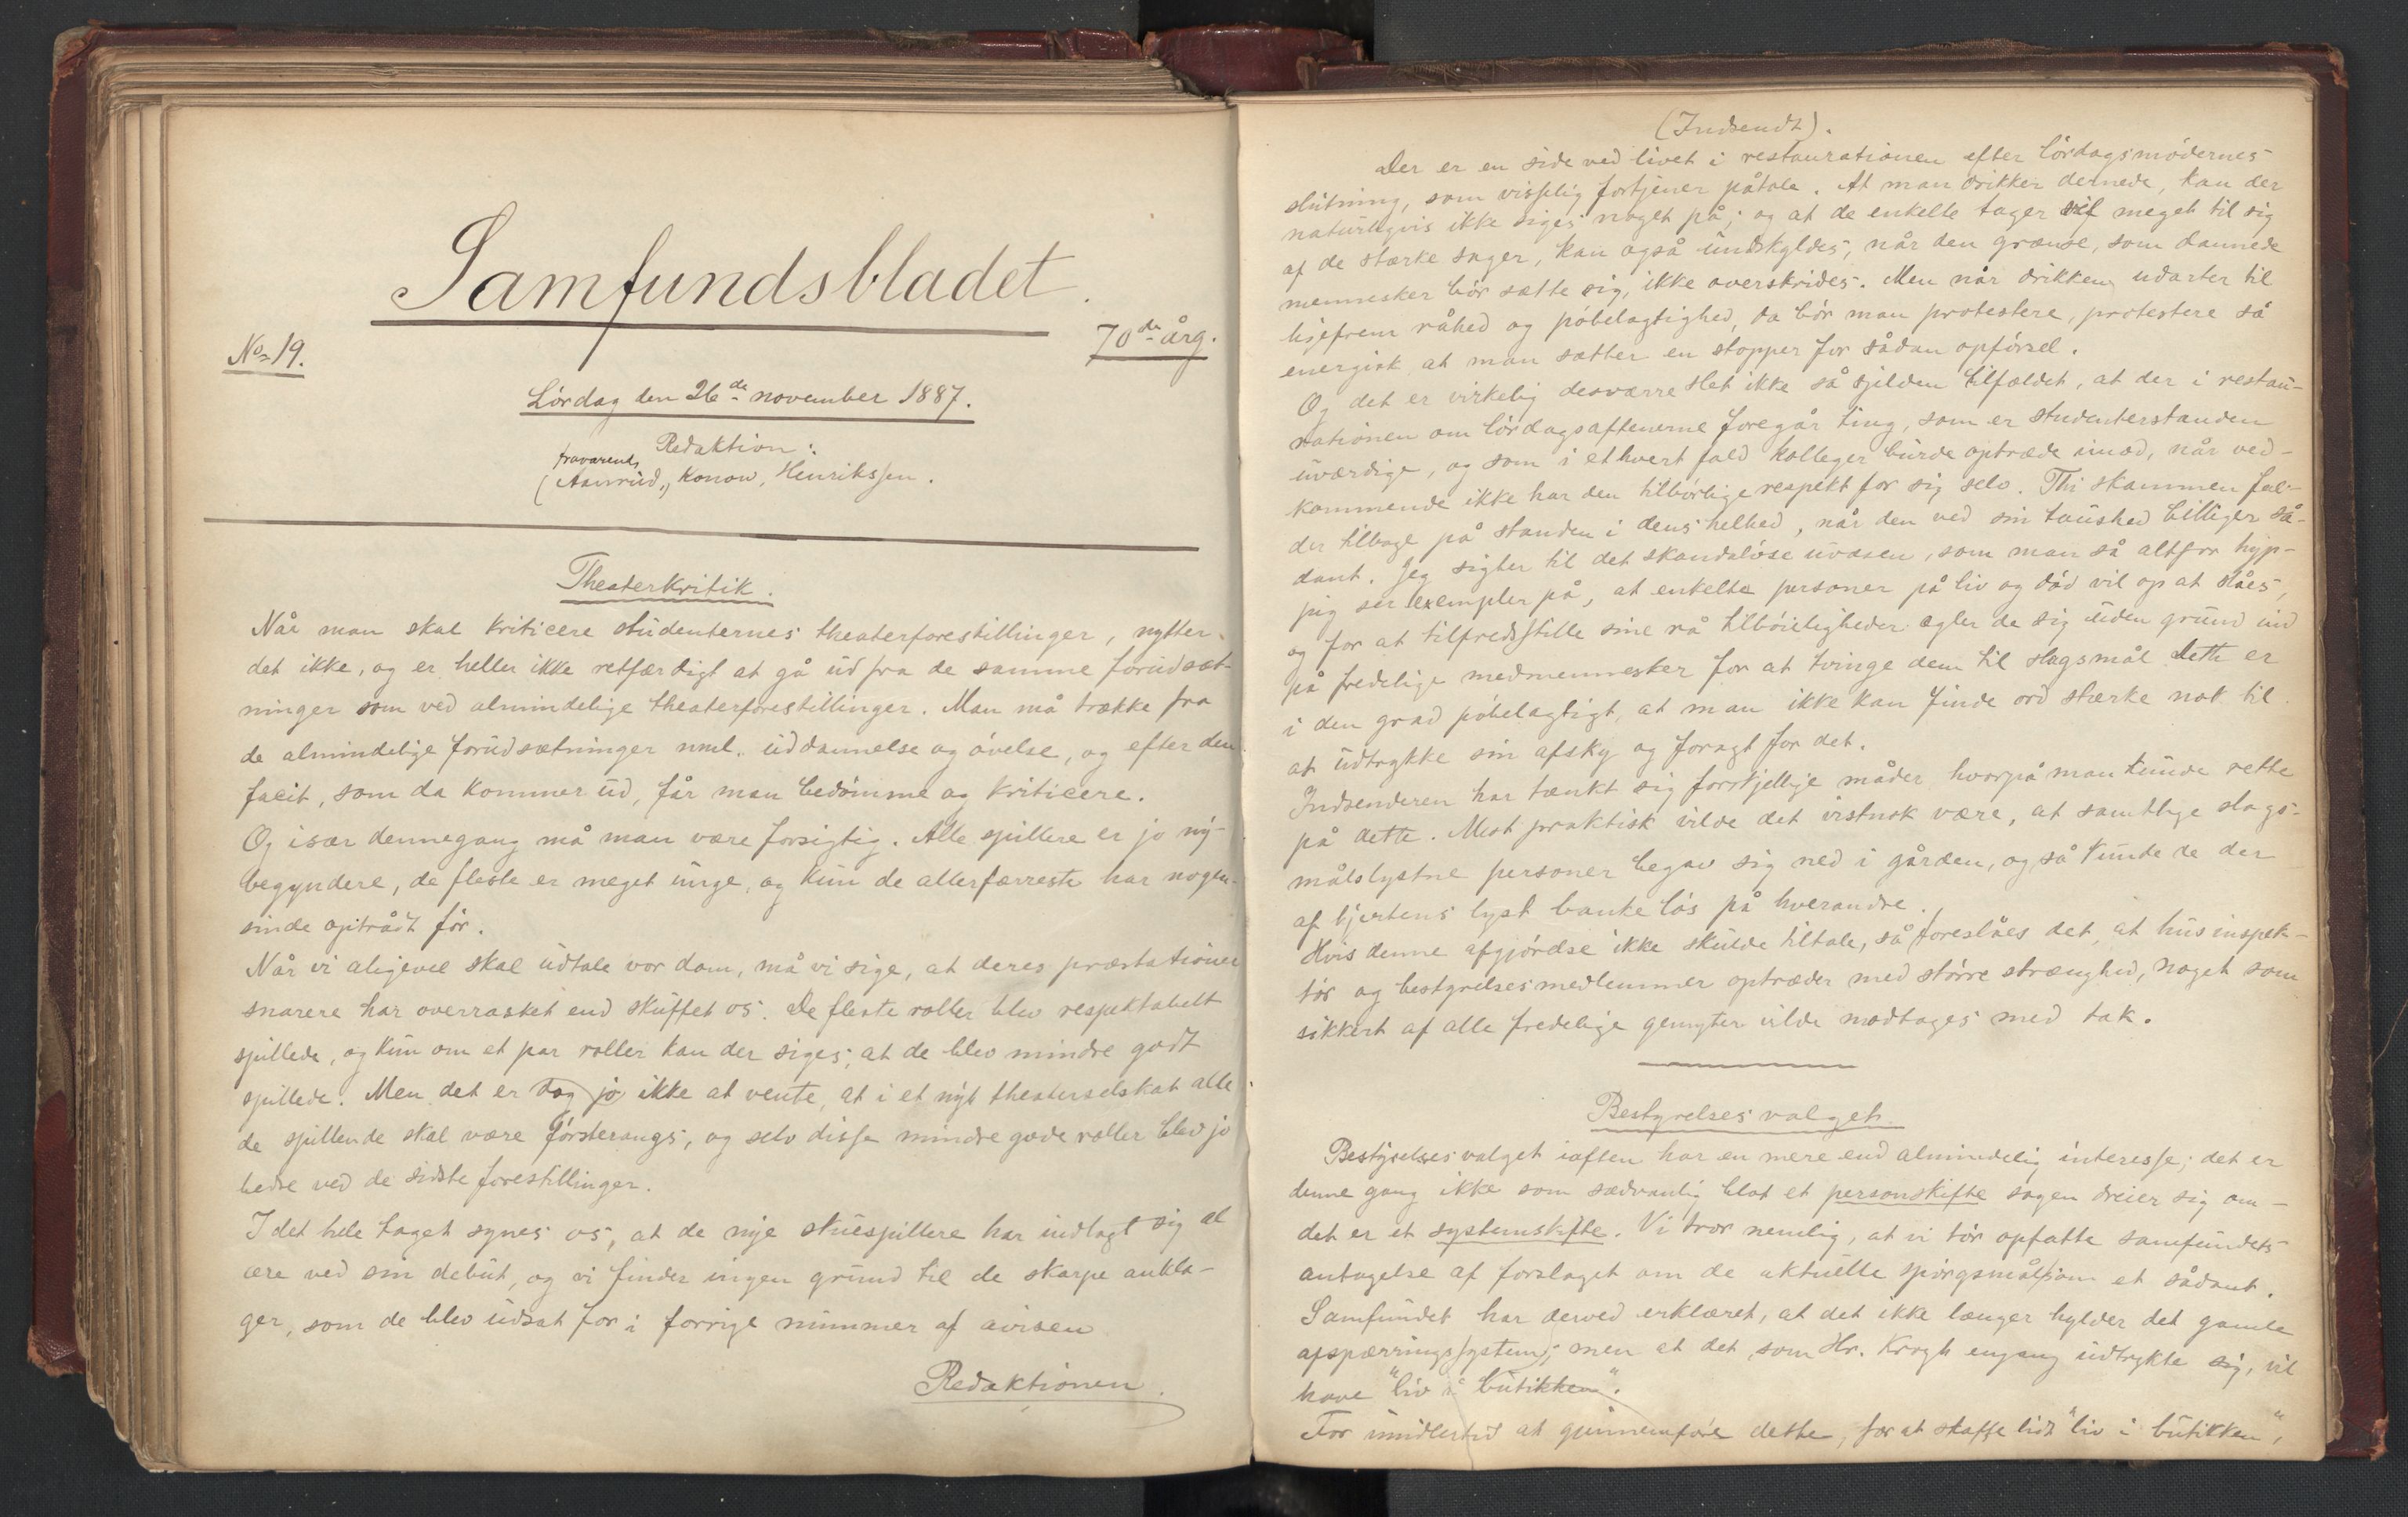 Samfundsbladet.
No 19.
70de årg.
Lördag den 26de november 1887.
Redaktion:
fraværende
(Aanrud,) Konow, Henrikssen.
Theaterkritik.
Når man skal kriticere studenternes theaterforestillinger, nytter
det ikke, og er heller ikke retfærdigt at gå ud fra de samme forudsæt-
ninger som ved almindelige theaterforestillinger. Man må trække fra
de almindelige forudsætninger nml. uddannelse og övelse, og efter den
facit, som da kommer ud, får man bedömme og kriticere.
Og især dennegang må man være forsigtig. Alle spillere er jo ny-
begyndere, de fleste er meget unge, og kun de allerfærreste har nogen-
sinde optrådt för.
Når vi aligevel skal udtale vor dom, må vi sige, at deres præstationer
snarere har overrasket end skuffet os. De fleste roller blev respektabelt
spillede, og kun om et par roller kan der siges, at de blev mindre godt
spillede. Men det er dog jo ikke at vente, at i et nyt theaterselskab alle
de spillende skal være förderangs, og selv disse mindre gode roller blev jo
bedre ved de sidste forestillinger.
I det hele taget synes os, at de nye skuespillere har indlagt sig al
ære ved sin debut, og vi finder ingen grund til de skarpe ankla-
ger, som de blev udsat for i forrige nummer af avisen
Redaktionen.
(Indsendt).
Der er en side ved livet i restaurationen efter lördagsmödernes
slutning, som visselig fortjener påtale. At man drikker dernede, kan der
naturligvis ikke siges noget på; og at de enkelte tager vel meget til sig
af de stærke sager, kan også undskyldes, når den grænse, som dannede
mennesker bör sætte sig, ikke overskrides. Men når drikken udarter til
ligefrem råhed og pöbelagtighed, da bör man protestere, protestere så
energisk at man sætter en stopper for sådan opförsel.
Og det er virkelig desværre slet ikke så sjelden tilfældet, at der i restau-
rationen om lördagsaftenerne foregår ting, som er studenterstanden
uværdige, og som i ethvert fald kolleger burde optræde imod, når ved-
kommende ikke har den tilbörlige respekt for sig selv. Thi skammen fal-
der tilbage på standen i dens helhed, når den ved sin taushed billiger så-
dant. Jeg sigter til det skandalöse uvæsen, som man så altfor hyp-
pig ser exempler på, at enkelte personer på liv og död vil op at slåes,
og for at tilfredsstille sine rå tilböieligheder egler de sig uden grund ind
på fredelige medmennesker for at tvinge dem til slagsmål. Dette er
i den grad pöbelagtigt, at man ikke kan finde ord stærke nok til
at udtrykke sin afsky og foragt for det.
Indsenderen har tænkt sig forskjellige måder hvorpå man kunde rette
på dette. Mest praktisk vilde det vistnok være, at samtlige slags-
målslystne personer begav sig ned i gården, og så kunde de der
af hjertens lyst banke lös på hverandre.
Hvis denne afgjörelse ikke skulde tiltale, så foreslåes det, at husinspek-
tör og bestyrelsesmedlemmer optræder med större strænghed, noget som
sikkert af alle fredelige gemyter vilde modtages med tak.
Bestyrelsesvalget.
Bestyrelsesvalget iaften har en mere end almindelig interesse; det er
denne gang ikke som sædvanlig blot et personskifte sagen dreier sig om –
det er et systemskifte. Vi tror nemlig, at vi tör opfatte samfundets
antagelse af forslaget om de aktuelle spörgsmål som et sådant.
Samfundet har derved erklæret, at det ikke længer hylder det gamle
afspærringssystem; men at det, som Hr. Krogh engang udtrykte sig, vil
have "liv i butikken".
For imidlertid at gjennemföre dette, for at skaffe lidt "liv i butikken",